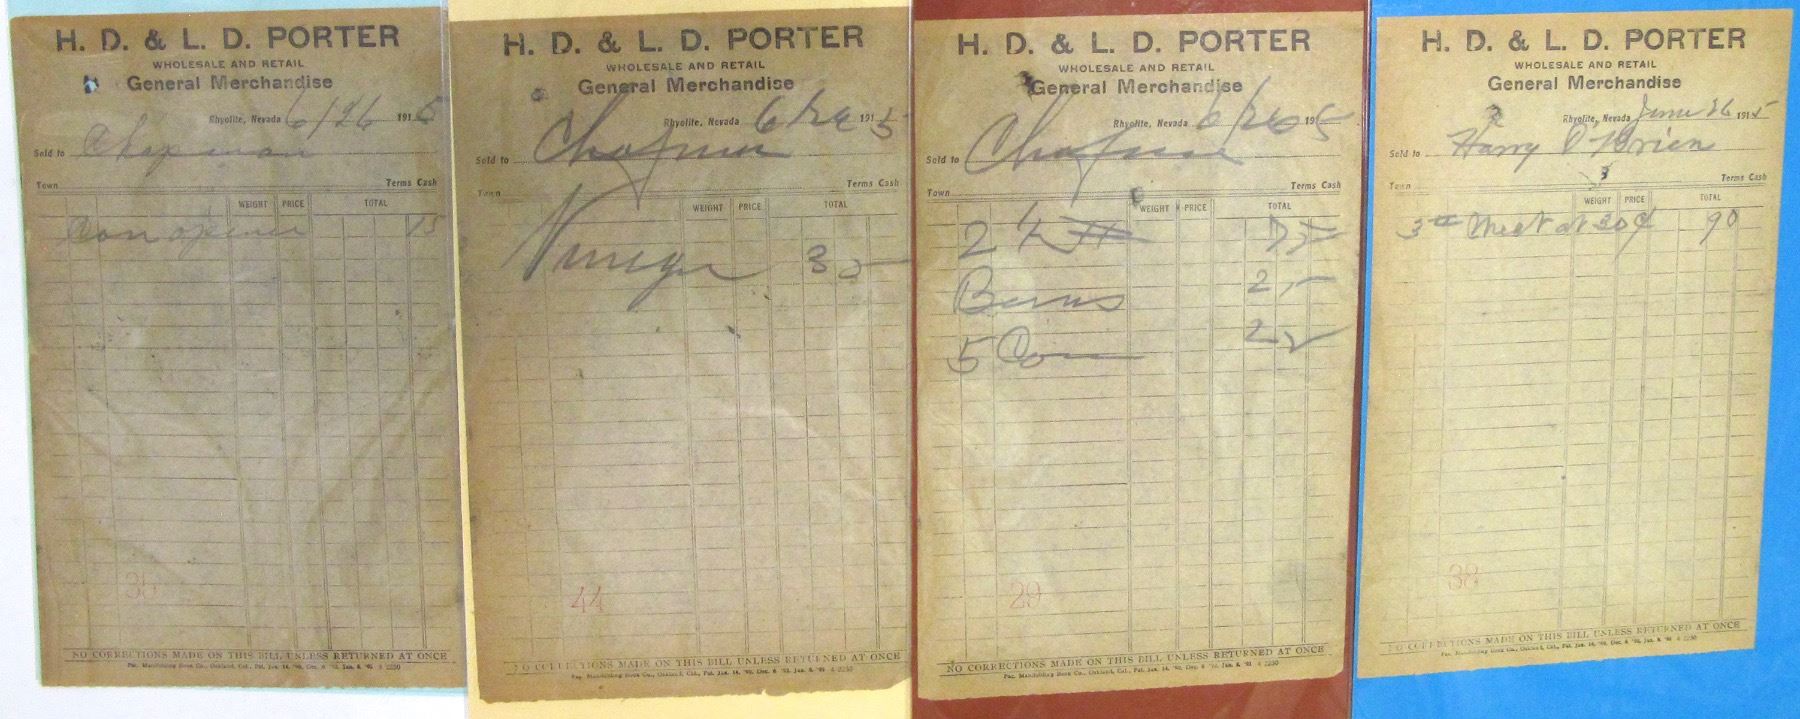 H. D. & L. D. PORTER
WHOLESALE AND RETAIL
General Merchandise
Rhyolite, Nevada 6/26 1915
Sold to Chapman
Town Terms Cash
WEIGHT PRICE TOTAL
Can opener 15
35
NO CORRECTIONS MADE ON THIS BILL UNLESS RETURNED AT ONCE
Pac. Manifolding Book Co., Oakland, Cal., Pat. Jan. 14,
H. D. & L. D. PORTER
WHOLESALE AND RETAIL
General Merchandise
Rhyolite, Nevada 6/26 1915
Sold to Chapman
Town Terms Cash
WEIGHT PRICE TOTAL
Vinegar 35
44
NO CORRECTIONS MADE ON THIS BILL UNLESS RETURNED AT ONCE
Pac. Manifolding Book Co., Oakland, Cal., Pat. Jan. 14,
H. D. & L. D. PORTER
WHOLESALE AND RETAIL
General Merchandise
Rhyolite, Nevada 6/26 1915
Sold to Chapman
Town Terms Cash
WEIGHT PRICE TOTAL
2 75
Beans 25
5 Corn 25
29
NO CORRECTIONS MADE ON THIS BILL UNLESS RETURNED AT ONCE
Pac. Manifolding Book Co., Oakland, Cal., Pat. Jan. 14,
H. D. & L. D. PORTER
WHOLESALE AND RETAIL
General Merchandise
Rhyolite, Nevada June 26 1915
Sold to Harry O'Brien
Town Terms Cash
WEIGHT PRICE TOTAL
3# Meat at 30¢ 90
38
NO CORRECTIONS MADE ON THIS BILL UNLESS RETURNED AT ONCE
Pac. Manifolding Book Co., Oakland, Cal., Pat. Jan. 14,